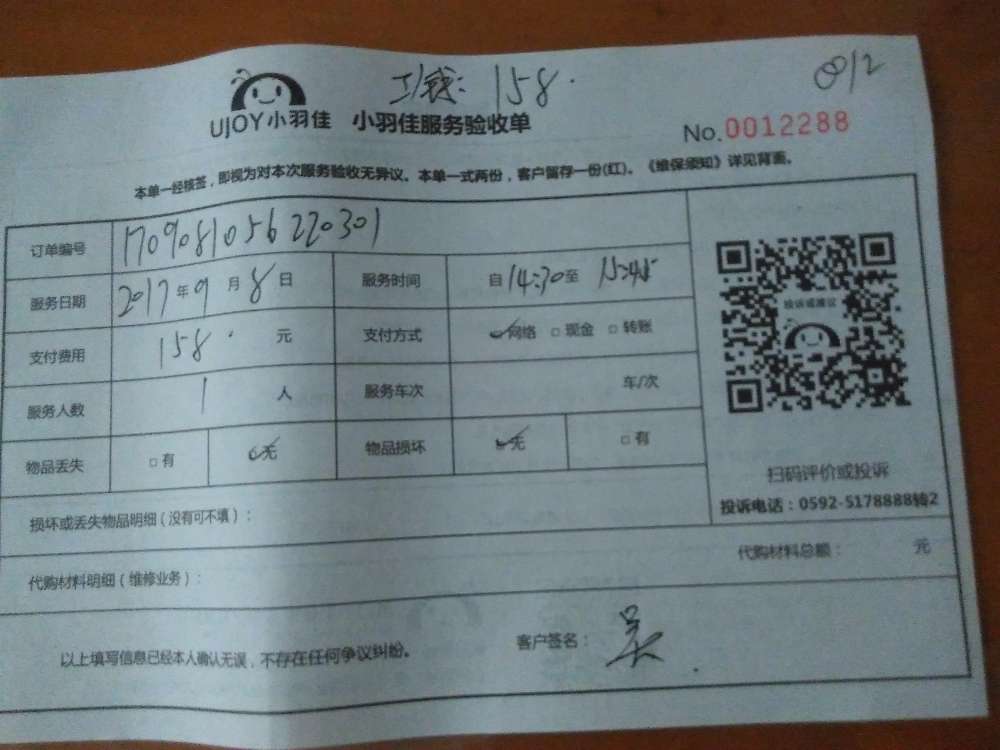 工钱：158.
0812
UJOY小羽佳 小羽佳服务验收单
No.0012288
本单一经核签，即视为对本次服务验收无异议。本单一式两份，客户留存一份(红)。《维保须知》详见背面。
订单编号 1709081056220301
服务日期 2017年09月8日 服务时间 自14:30至15:45
支付费用 158. 元 支付方式 网络 □现金 □转账
服务人数 1 人 服务车次 车/次
物品丢失 □有 无 物品损坏 无 □有
投诉或建议
扫码评价或投诉
投诉电话：0592-5178888转2
损坏或丢失物品明细（没有可不填）：
代购材料明细（维修业务）： 代购材料总额： 元
以上填写信息已经本人确认无误，不存在任何争议纠纷。 客户签名： 吴